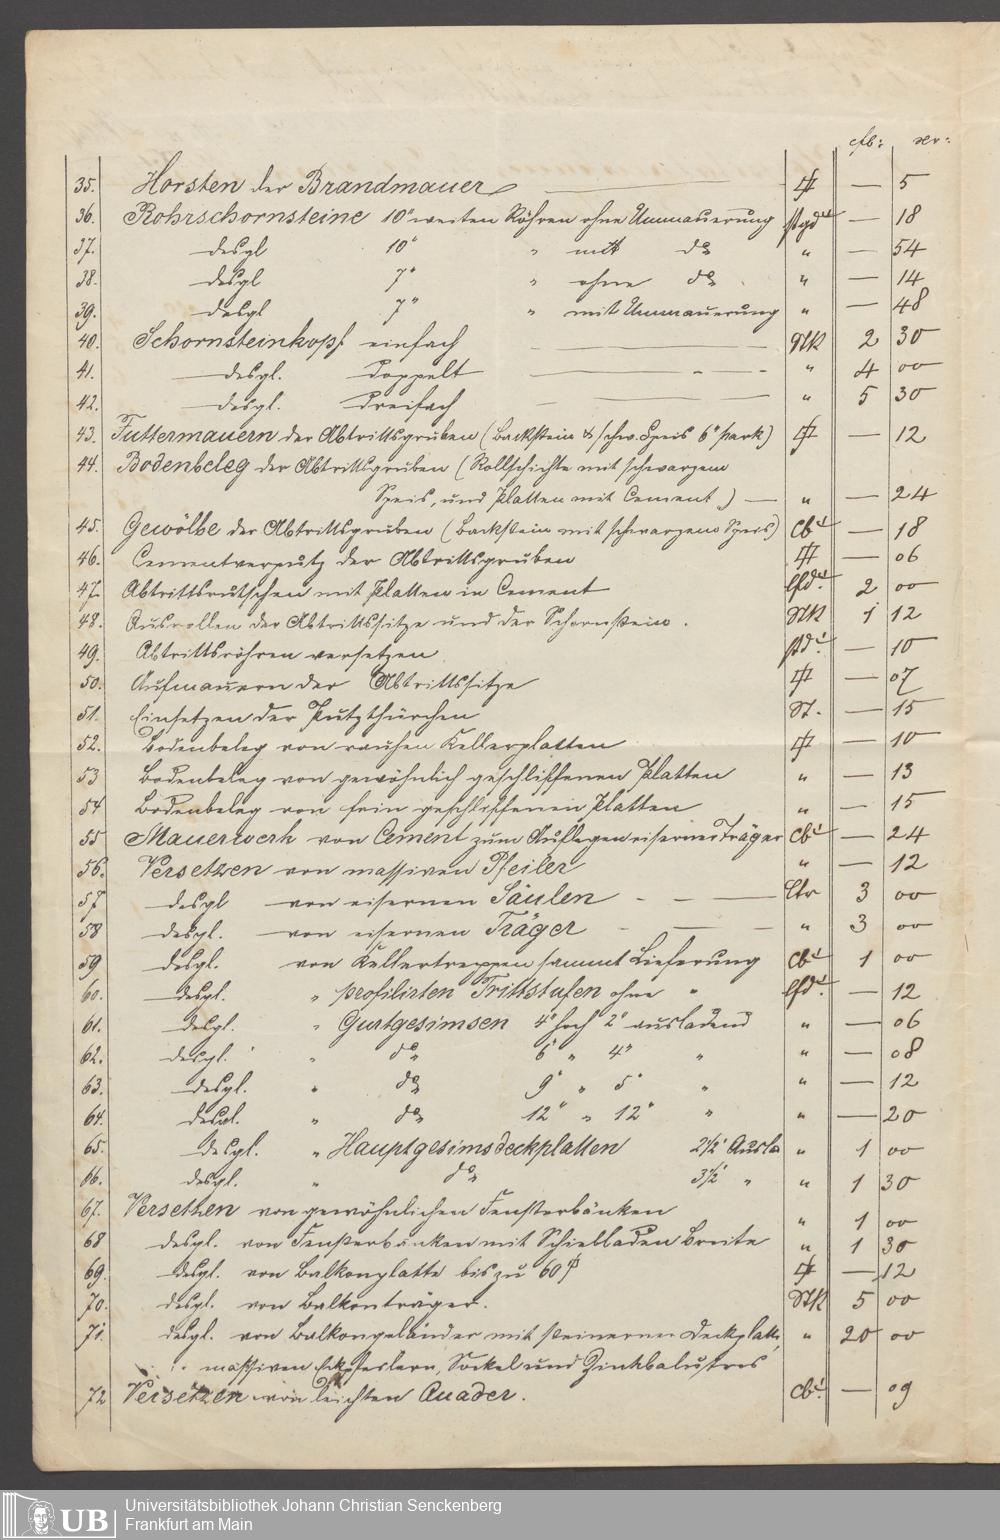 fl: xr:
35. Horsten der Brandmauer — □' — 5
36. Rohrschornsteine 10" weiten Röhren ohne Ummauerung stgd' — 18
37. desgl 10" " mit do " — 54
38. desgl 7" " ohne do " — 14
39. desgl 7" " mit Ummauerung " — 48
40. Schornsteinkopf einfach — Stk 2 30
41. desgl. doppelt — " 4 00
42. desgl. dreifach — " 5 30
43. Futtermauern der Abtrittsgruben (Backstein & schw. Speis 6" stark) □' — 12
44. Bodenbeleg der Abtrittsgruben (Rollschichte mit schwarzem
Speis, und Platten mit Cement) — " — 24
45. Gewölbe der Abtrittsgruben (Backstein mit schwarzem Speis) Cb' — 18
46. Cementverputz der Abtrittsgruben □' — 06
47. Abtrittsrutschen mit Platten in Cement lfd' 2 00
48. Ausrollen der Abtrittssitze und der Schornstein. Stk 1 12
49. Abtrittsröhren versetzen std' — 10
50. Aufmauern der Abtrittssitze □' — 07
51. Einsetzen der Putzthürchen St. — 15
52. Bodenbeleg von rauhen Kellerplatten □' — 10
53 Bodenbeleg von gewöhnlich geschliffenen Platten " — 13
54 Bodenbeleg von fein geschliffenen Platten " — 15
55 Mauerwerk von Cement zum Auflegen eiserner Träger Cb' — 24
56. Versetzen von massiven Pfeiler " — 12
57 desgl von eisernen Säulen — Ctr 3 00
58 desgl. von eisernen Träger — " 3 00
59 desgl. von Kellertreppen sammt Lieferung Cb' 1 00
60. desgl. " profilirten Trittstufen ohne " lfd' — 12
61. desgl. " Gurtgesimsen 4" hoch 2" ausladend " — 06
62. desgl. " do 6" " 4" " " — 08
63. desgl. " do 9" " 5" " " — 12
64. desgl. " do 12" " 12" " " — 20
65. desgl. " Hauptgesimsdeckplatten 2½' Ausla " 1 00
66. desgl. " do 3½' " " 1 30
67. Versetzen von gewöhnlichen Fensterbänken " 1 00
68 desgl. von Fensterbänken mit Schiebladen Breite " 1 30
69. desgl. von Balkonplatte bis zu 60□' □' — 12
70. desgl. von Balkonträger. Stk 5 00
71. desgl. von Balkongeländer mit steinernen Deckplatt, " 20 00
massiven Eckpfeilern, Sockel und Zinkbalustres
72 Versetzen von leichten Quader. Cb' — 09
UB
Universitätsbibliothek Johann Christian Senckenberg
Frankfurt am Main